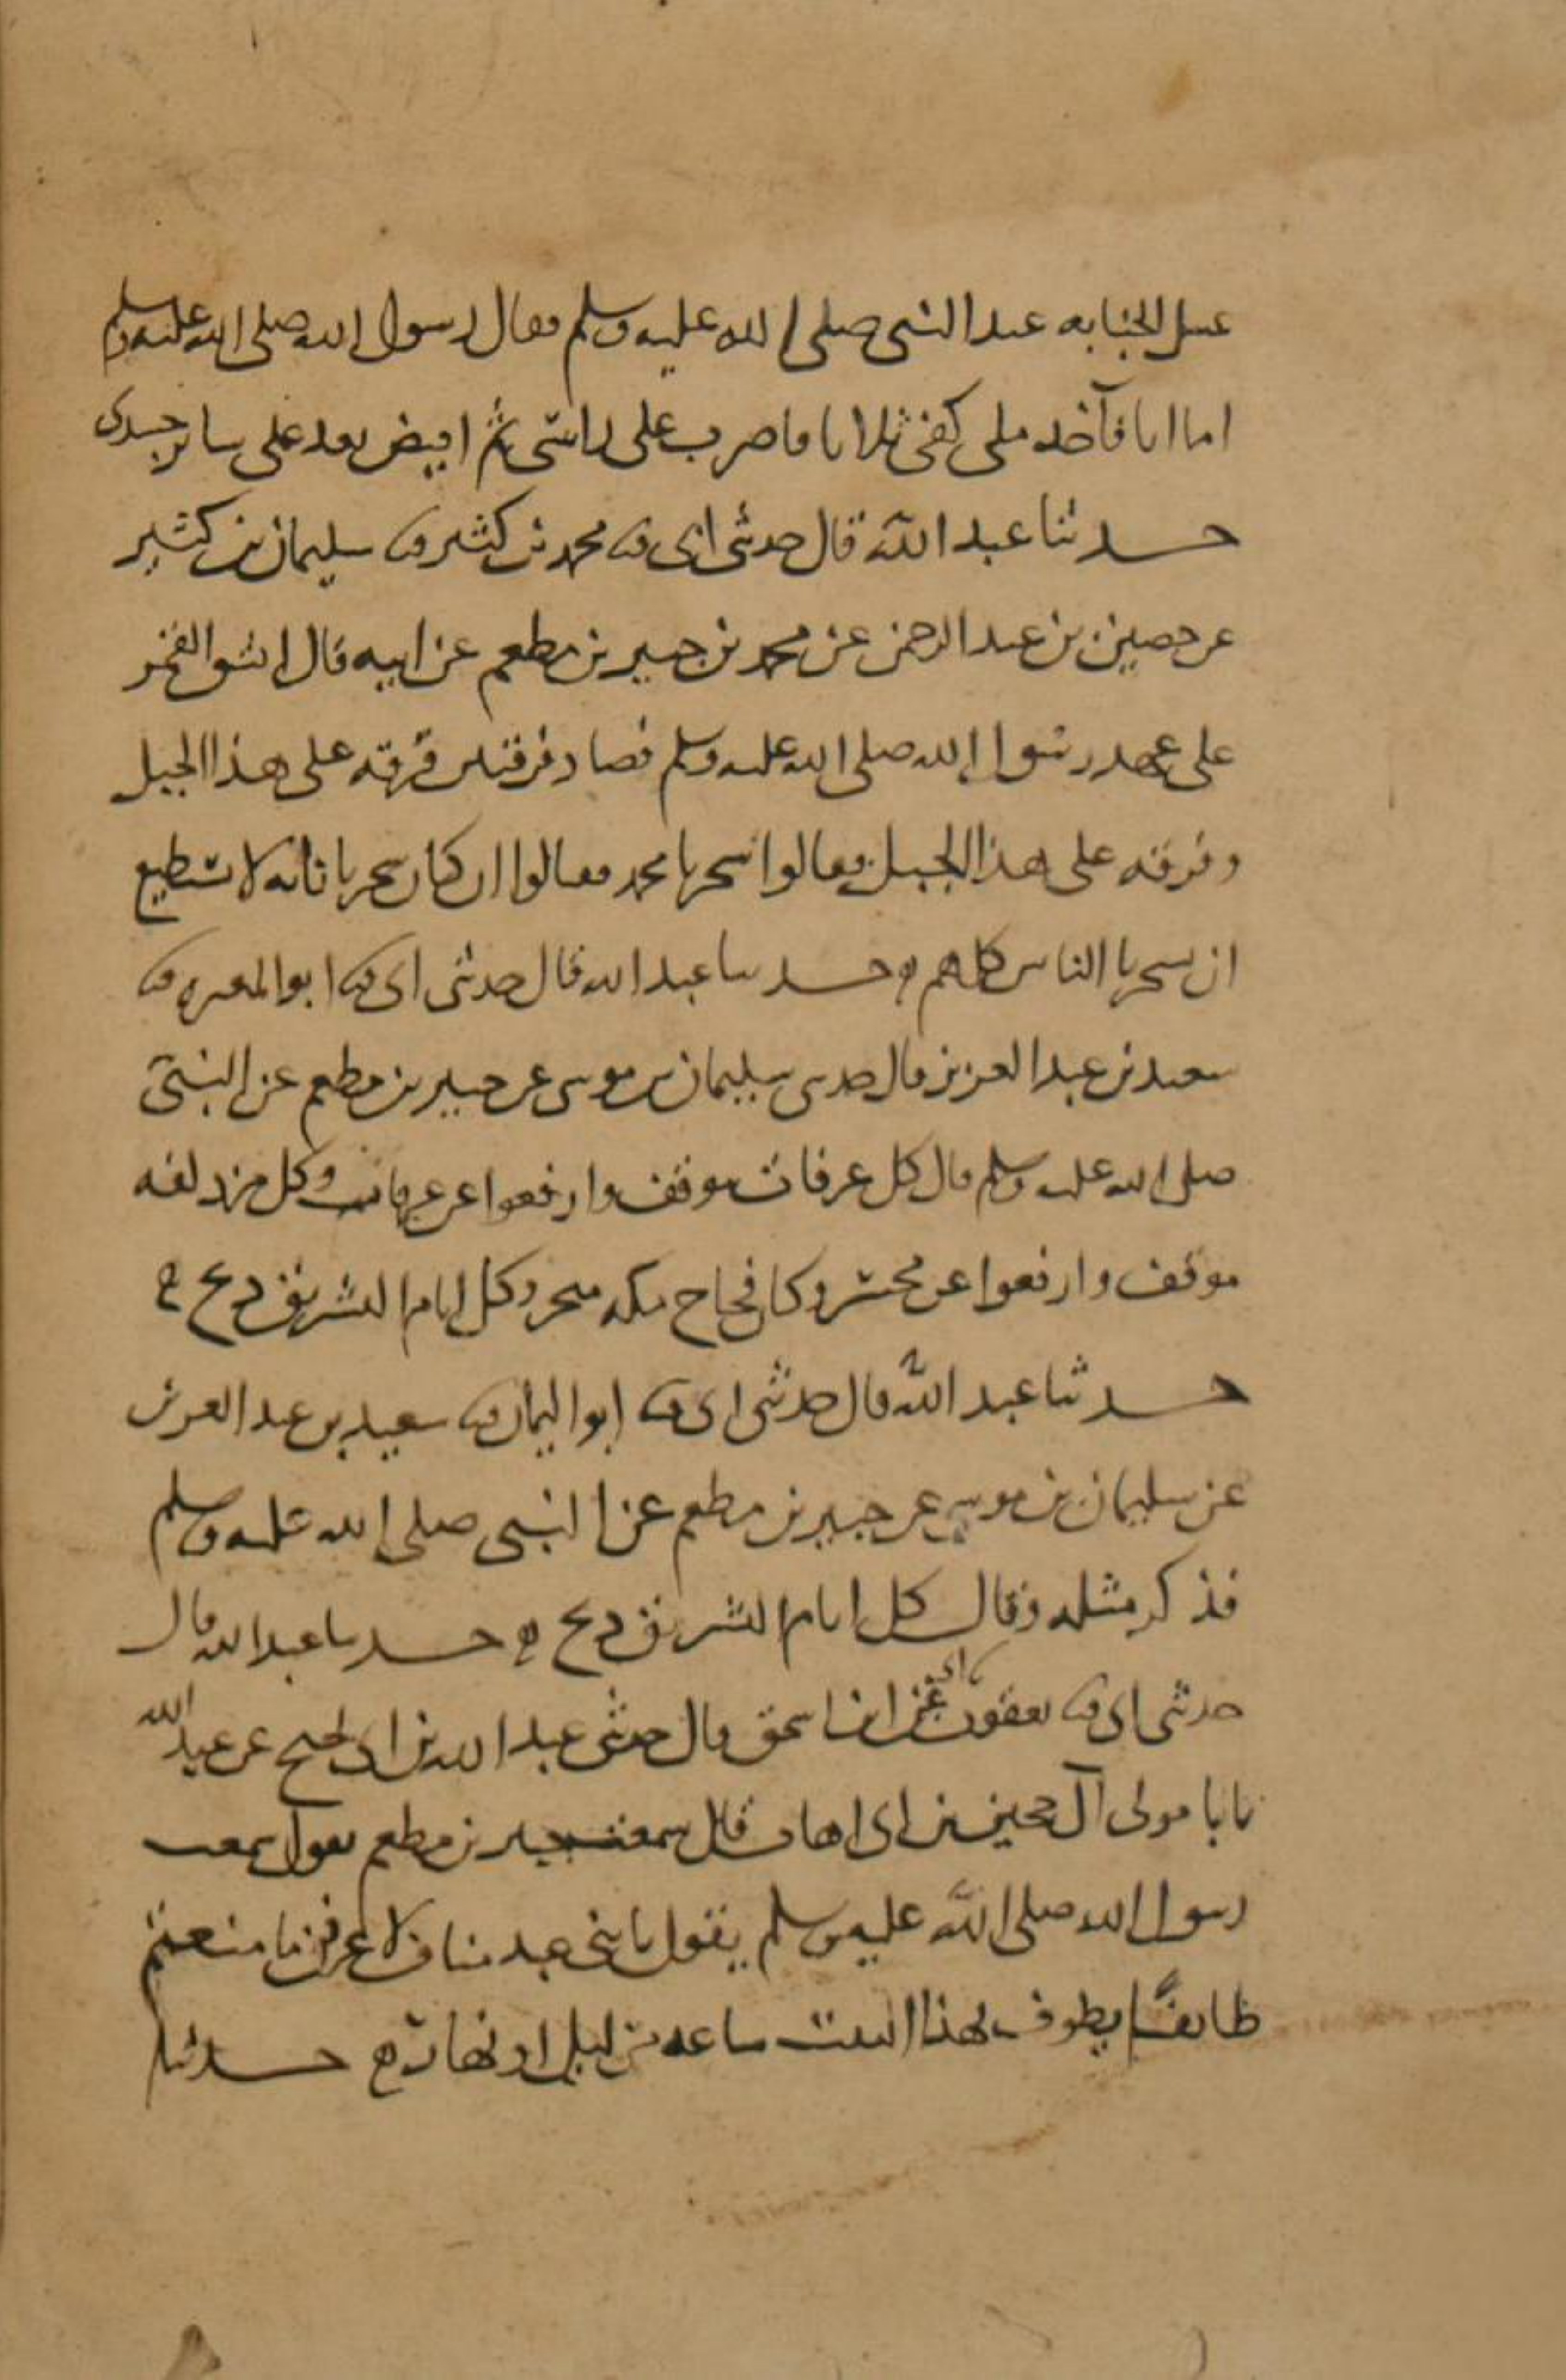 غسل الجنابه عند النبي صلى الله عليه وسلم فقال رسول الله صلى الله عليه وسلم
اما انا فآخذ ملى كفى ثلاثا فاصب على راسى ثم افيض بعد على سائر جسدى
حدثنا عبد الله قال حدثنى ابى ثنا محمد بن كثير ثنا سليمان بن كثير
عن حصين بن عبد الرحمن عن محمد بن جبير بن مطعم عن ابيه قال انشق القمر
على عهد رسول الله صلى الله عليه وسلم فصار فرقتين فرقه على هذا الجبل
وفرقه على هذا الجبل فقالوا سحرنا محمد فقالوا ان كان سحرنا فانه لا يستطيع
ان يسحرنا الناس كلهم ه حدثنا عبد الله قال حدثنى ابى ثنا ابو المغيره ثنا
سعيد بن عبد العزيز قال حدثنى سليمان بن موسى عن جبير بن مطعم عن النبى
صلى الله عليه وسلم قال كل عرفات موقف وارفعوا عن عرفات وكل مزدلفه
موقف وارفعوا عن محسر وكل فجاج مكه منحر وكل ايام التشريق ذبح ه
حدثنا عبد الله قال حدثنى ابى ثنا ابو اليمان ثنا سعيد بن عبد العزيز
عن سليمان بن موسى عن جبير بن مطعم عن النبى صلى الله عليه وسلم
فذكر مثله وقال كل ايام التشريق ذبح ه حدثنا عبد الله قال
حدثنى ابى ثنا يعقوب ابى عن ابن اسحق قال حدثنى عبد الله بن ابى نجيح عن عبد الله
بابا مولى آل حجين بن ابى اهاب قال سمعت جبير بن مطعم يقول سمعت
رسول الله صلى الله عليه وسلم يقول يا بنى عبد مناف لا عرفن ما منعتم
طايفا يطوف بهذا البيت ساعه من ليل او نهار ه حدثنا